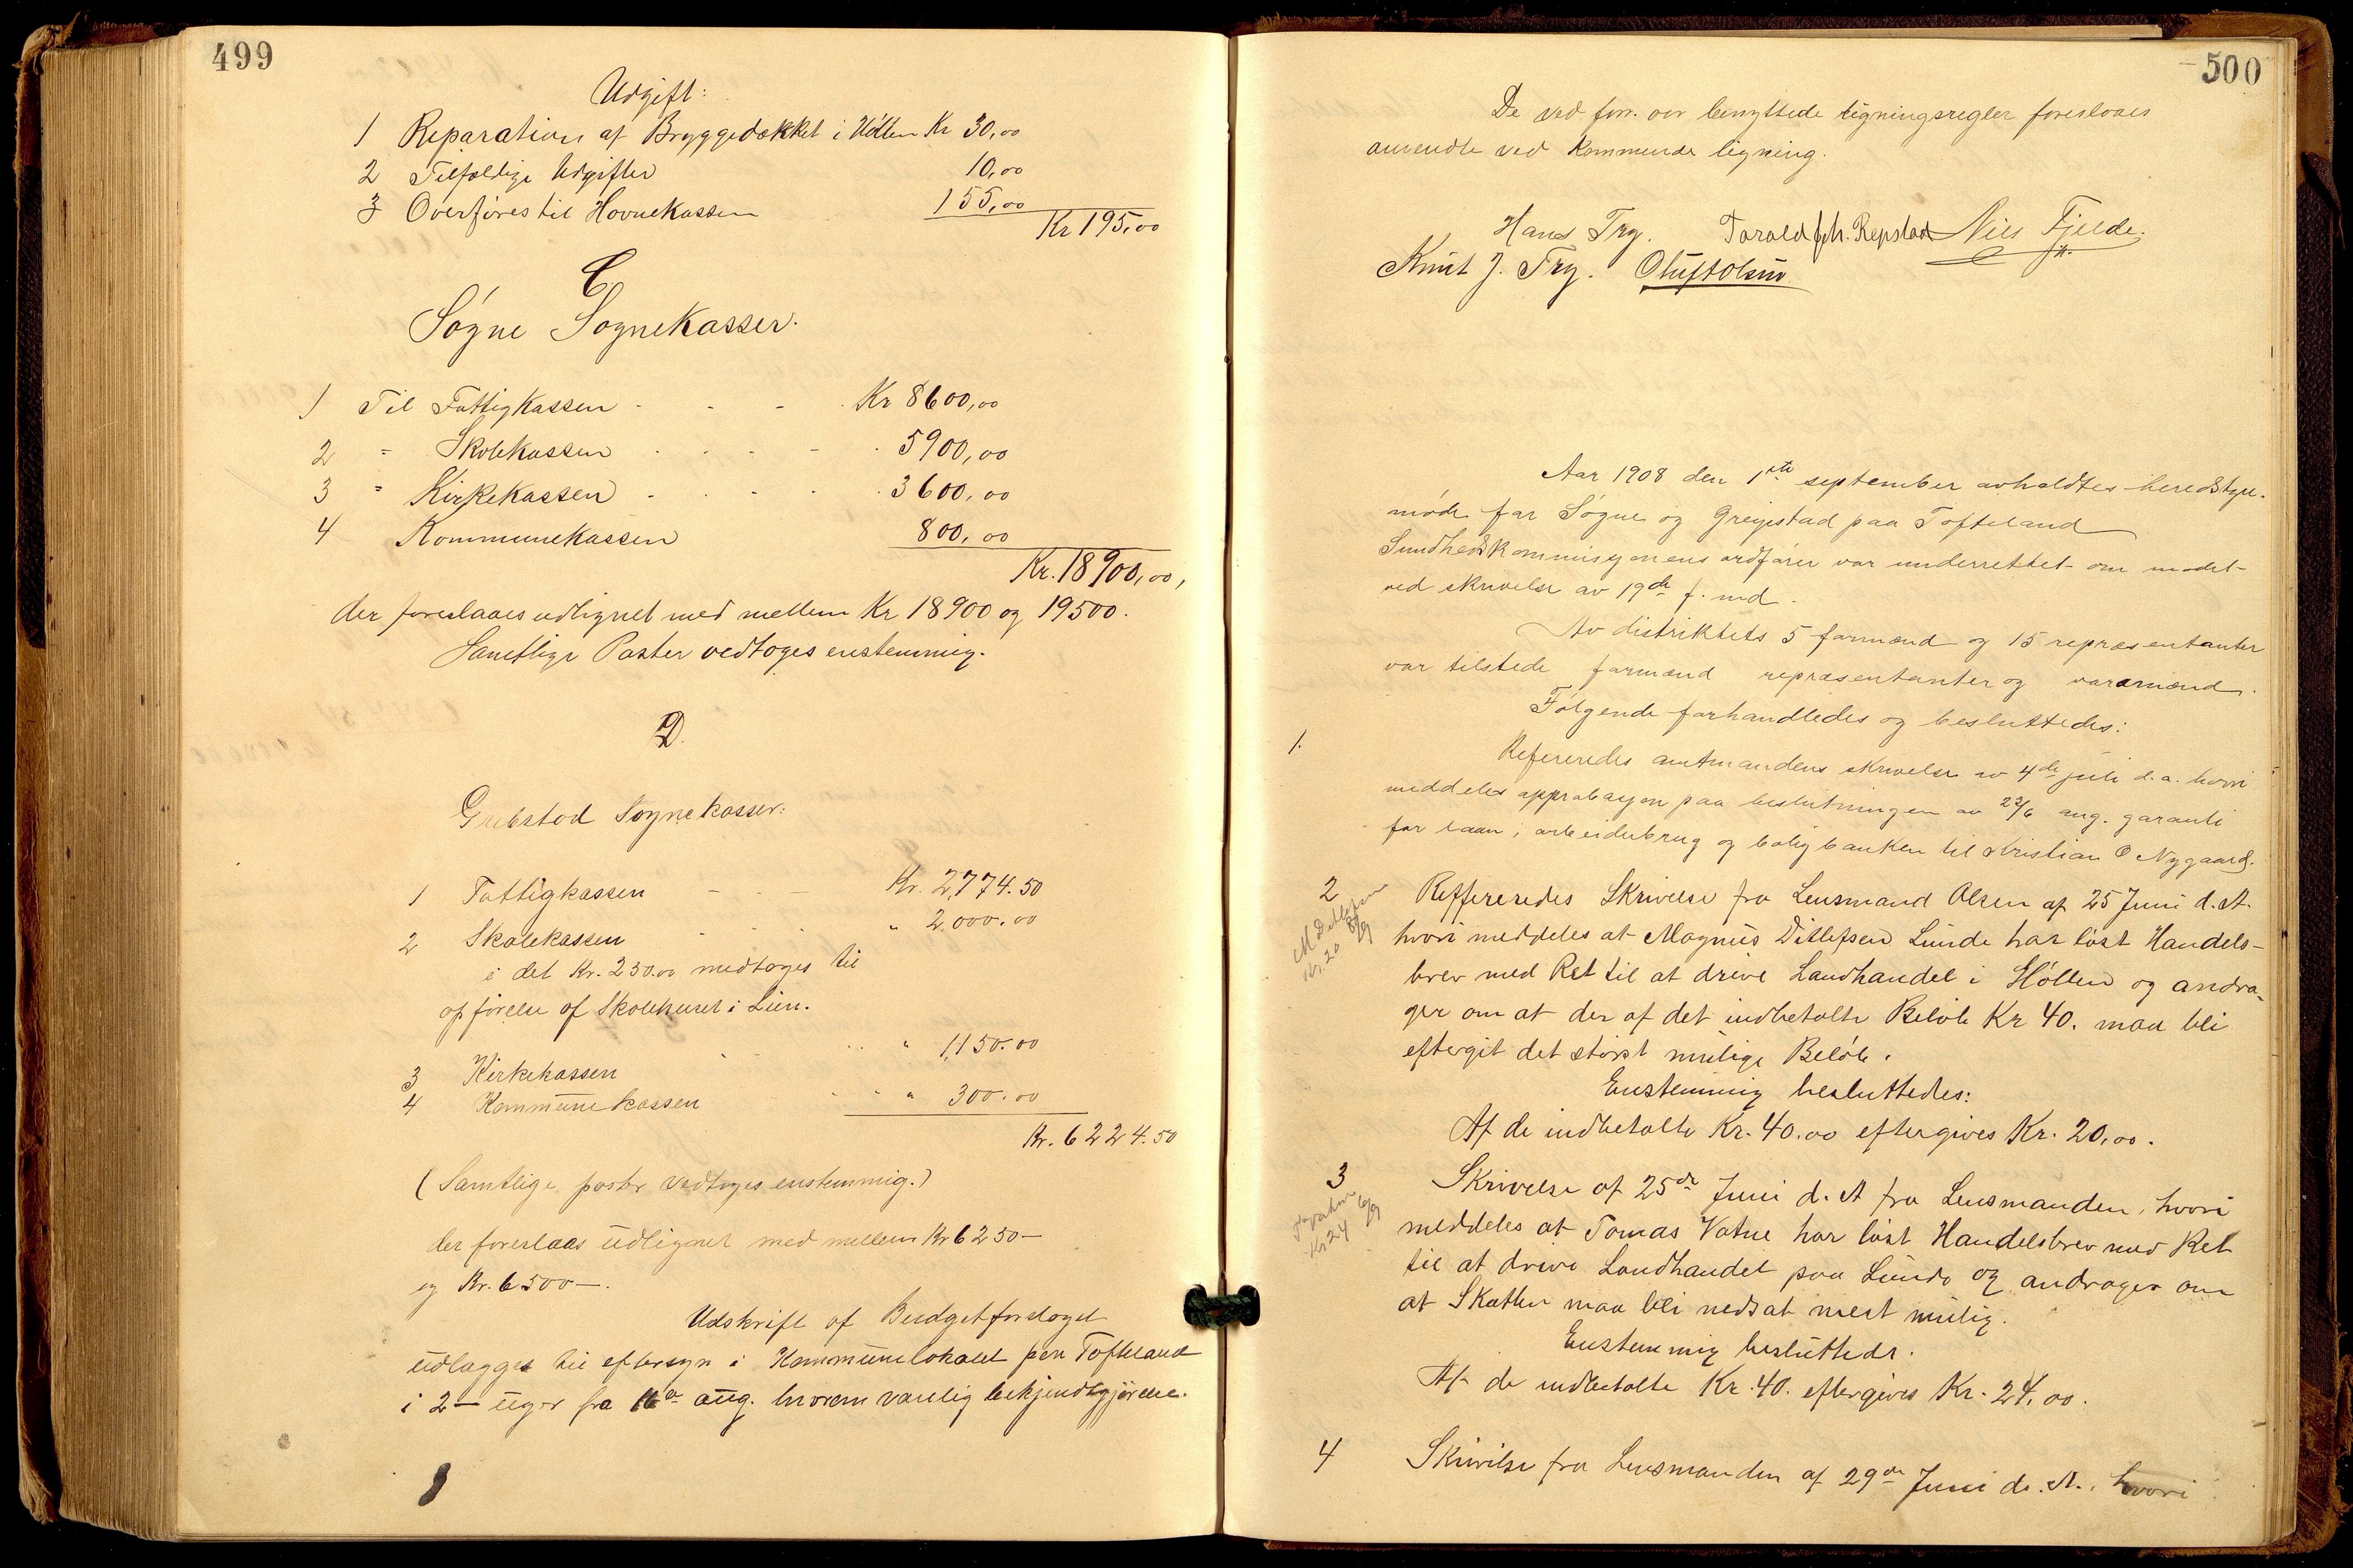 499
Udgift:
1 Reparation af Bryggedækket i Høllen Kr 30,00
2 Tilfældige Udgifter 10,00
3 Overføres til Havnekassen 155,00
Kr 195,00
C
Søgne Sognekasser.
1 Til Fattigkassen - - - Kr 8600,00
2 = Skolekassen - - - - 5900,00
3 = Kirkekassen - - - - 3600,00
4 Kommunekassen 800,00
Kr. 18900,00,
der foreslaaes udlignet med mellem Kr 18900 og 19500.
Samtlige Poster vedtoges enstemmig.
D.
Greipstad Sognekasser:
1 Fattigkassen - - - Kr. 2,774.50
2 Skolekassen " 2,000.00
i det Kr. 250.00 medtages til
opførelse af Skolehuset i Lien.
3 Kirkekassen " 1,150.00
4 Kommunekassen " 300.00
Kr. 6224.50
(Samtlige poster vedtoges enstemmig.)
der foreslaas udlignet med mellem Kr 6250-
og Kr. 6500-.
Udskrift af Budgetforslaget
udlægges til eftersyn i Kommunelokalet paa Tofteland
i 2- uger fra aug. hvorom vanlig bekjendtgjørelse.
500
De ved forr. aar benyttede ligningsregler foreslaaes
anvendte ved kommende ligning.
Hans Try. Taraldsch. Repstad Nils Fjelde.
jr.
Knut J. Try. Oluf Olsen
Aar 1908 den 1ste september avholdtes heredsstyre-
møde for Søgne og Greipstad paa Tofteland
Sundhedskommisjonens ordfører var underrettet om mødet
ved skrivelse av 19de f. md.
Av distriktets 5 formænd og 15 repræsentanter
var tilstede formænd repræsentanter og varamænd.
Følgende forhandledes og besluttedes:
1.
Refereredes amtmandens skrivelse av 4de juli d.a. hvori
meddeles approbasjon paa beslutningen av 22/6 ang. garanti
for laan i arbeiderbrug og boligbanken til Kristian O Nygaard.
2 Reffereredes Skrivelse fra Lensmand Olsen af 25 Juni d. A.
M Ditlefsen
Kr. 20 8/9
hvori meddeles at Magnus Ditlefsen Lunde har løst Handels-
brev med Ret til at drive Landhandel i Høllen og andra-
ger om at der af det indbetalte Beløb Kr 40. maa bli
eftergit det størst mulige Beløb.
Enstemmig besluttedes:
Af de indbetalte Kr. 40.00 eftergives Kr. 20,00.
3 Skrivelse af 25de Juni d. A fra Lensmanden, hvori
Vatne
Kr 24 6/9
meddeles at Tomas Vatne har løst Handelsbrev med Ret
til at drive Landhandel paa Lunde og andrager om
at Skatten maa bli nedsat mest mulig.
Enstemmig besluttede.
Af de indbetalte Kr. 40. eftergives Kr. 24,00.
4 Skrivelse fra Lensmanden af 29de Juni d. A., hvori